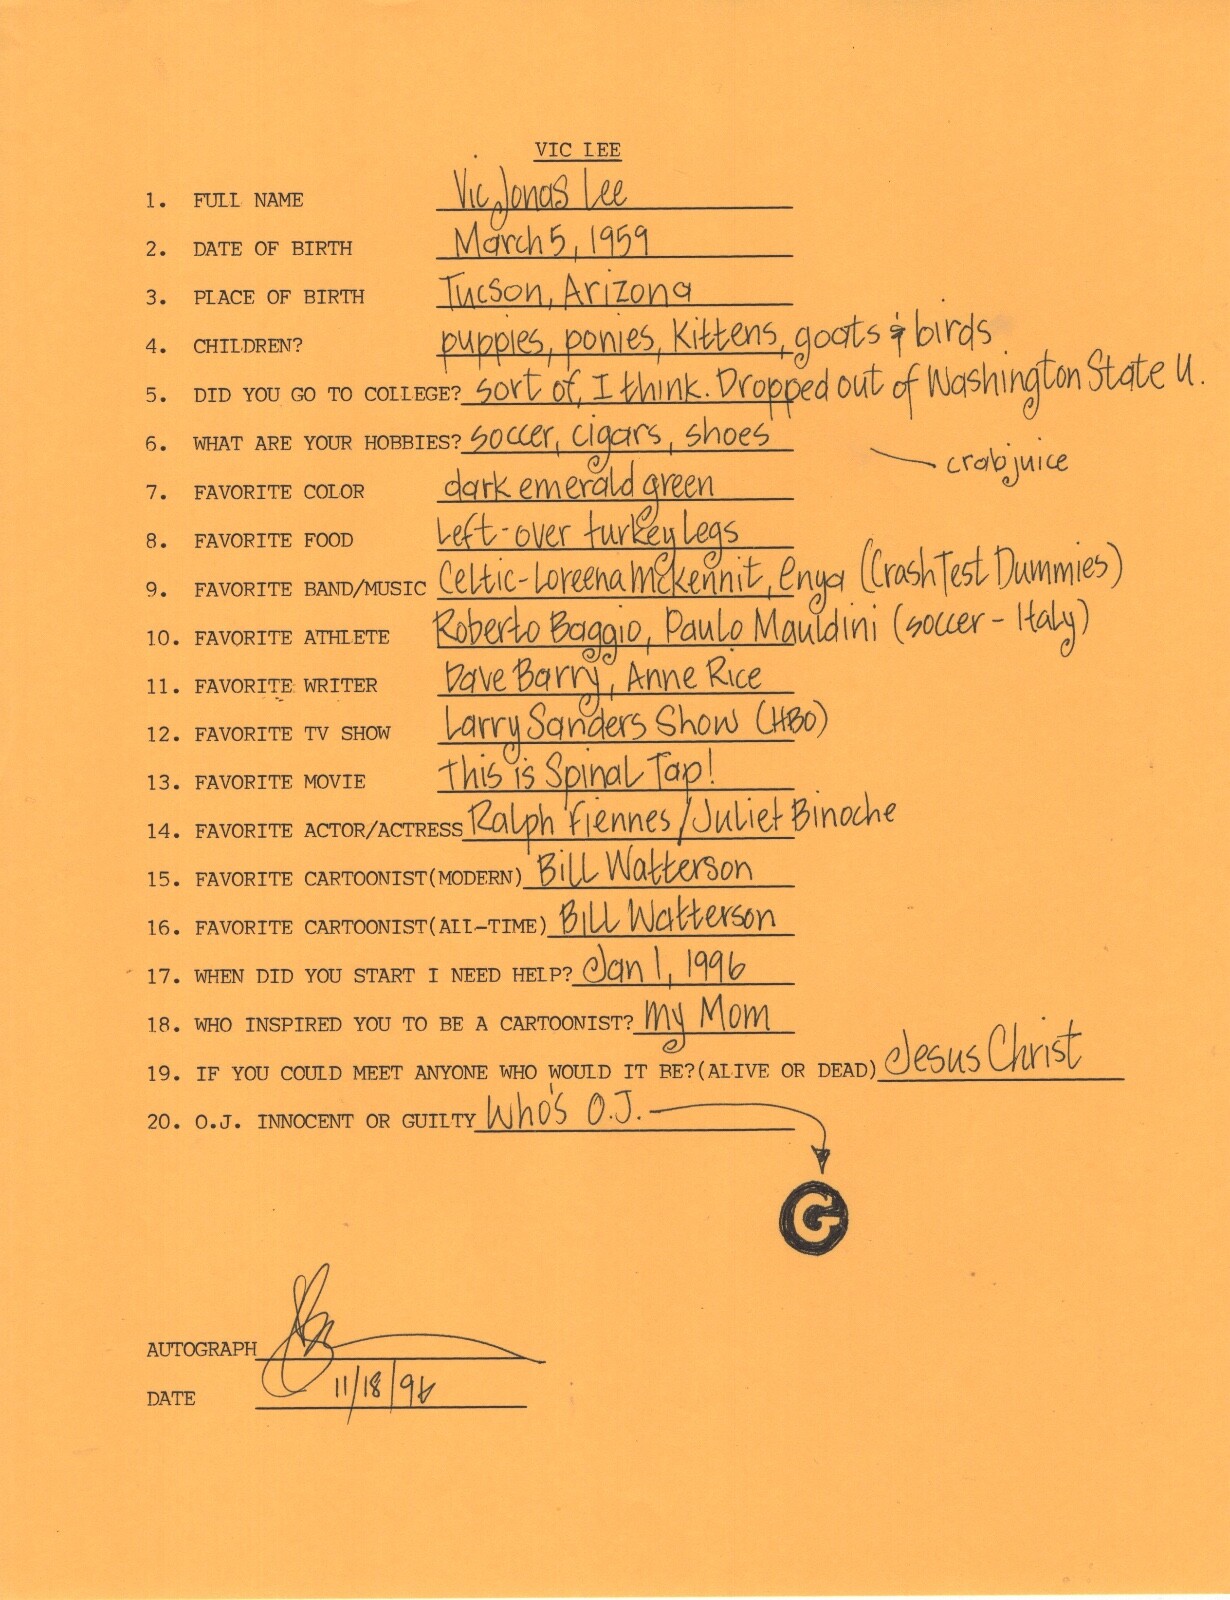 VIC LEE
1. FULL NAME Vic Jonas Lee
2. DATE OF BIRTH March 5, 1959
3. PLACE OF BIRTH Tucson, Arizona
4. CHILDREN? puppies, ponies, kittens, goats & birds
5. DID YOU GO TO COLLEGE? sort of, I think. Dropped out of Washington State U.
6. WHAT ARE YOUR HOBBIES? soccer, cigars, shoes
crab juice
7. FAVORITE COLOR dark emerald green
8. FAVORITE FOOD Left-over turkey legs
9. FAVORITE BAND/MUSIC Celtic-Loreena McKennit, enya (Crash Test Dummies)
10. FAVORITE ATHLETE Roberto Baggio, Paulo Mauldini (soccer - Italy)
11. FAVORITE WRITER Dave Barry, Anne Rice
12. FAVORITE TV SHOW Larry Sanders Show (HBO)
13. FAVORITE MOVIE This is Spinal Tap!
14. FAVORITE ACTOR/ACTRESS Ralph Fiennes/Juliet Binoche
15. FAVORITE CARTOONIST(MODERN) Bill Watterson
16. FAVORITE CARTOONIST(ALL-TIME) Bill Watterson
17. WHEN DID YOU START I NEED HELP? Jan 1, 1996
18. WHO INSPIRED YOU TO BE A CARTOONIST? my Mom
19. IF YOU COULD MEET ANYONE WHO WOULD IT BE?(ALIVE OR DEAD) Jesus Christ
20. O.J. INNOCENT OR GUILTY Who's O.J.
G
AUTOGRAPH
DATE 11/18/96